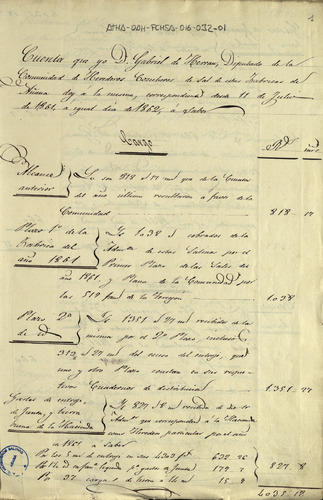 ATHA-DAH-FCHSA-016-032-01
1
Cuenta que yo D. Gabriel de Herran, Diputado de la
Comunidad de Herederos de Sal de estas Fabricas de
Añana doy a la misma, correspondiente desde 11 de Julio
de 1861, a igual dia de 1862, a saber
Cargo
Rs. mrs.
Alcance anterior
Es son 818 r. 17 ms. que de la Cuenta
del año último resultaron a favor de la
Comunidad
818 17
Plazo 1º de la
Fabrica del
año 1861
Id. 1038 r. cobrados de la
Admon. de estas Salinas por el
Primer Plazo de las Sales del
año 1861, y Plana de la Comunidad por
las 519 fan.s de la
1038
Plazo 2º
de id
Id. 1351 r. 27 ms. recibidos de la
misma por el 2º Plazo, inclusos
312 r. 27 ms. del exceso del entrojo, que
uno y otro Plazo constan en sus respec
tivos Cuadernos de distribucion
1351 27
Gastos de entrojo
de Juntas, y tierra
buena de la Hacienda
Id. 827 r. 8 ms. recibidos de dicha
Admon. que correspondieron a la Hacienda
como Heredera particular por el año
de 1861 a saber
Por los 5 ms. de entrojo en sus 4303 fs.
632 26
179
Por 37 cargas de tierra a 14 ms.
15 8
827 8
4035 18